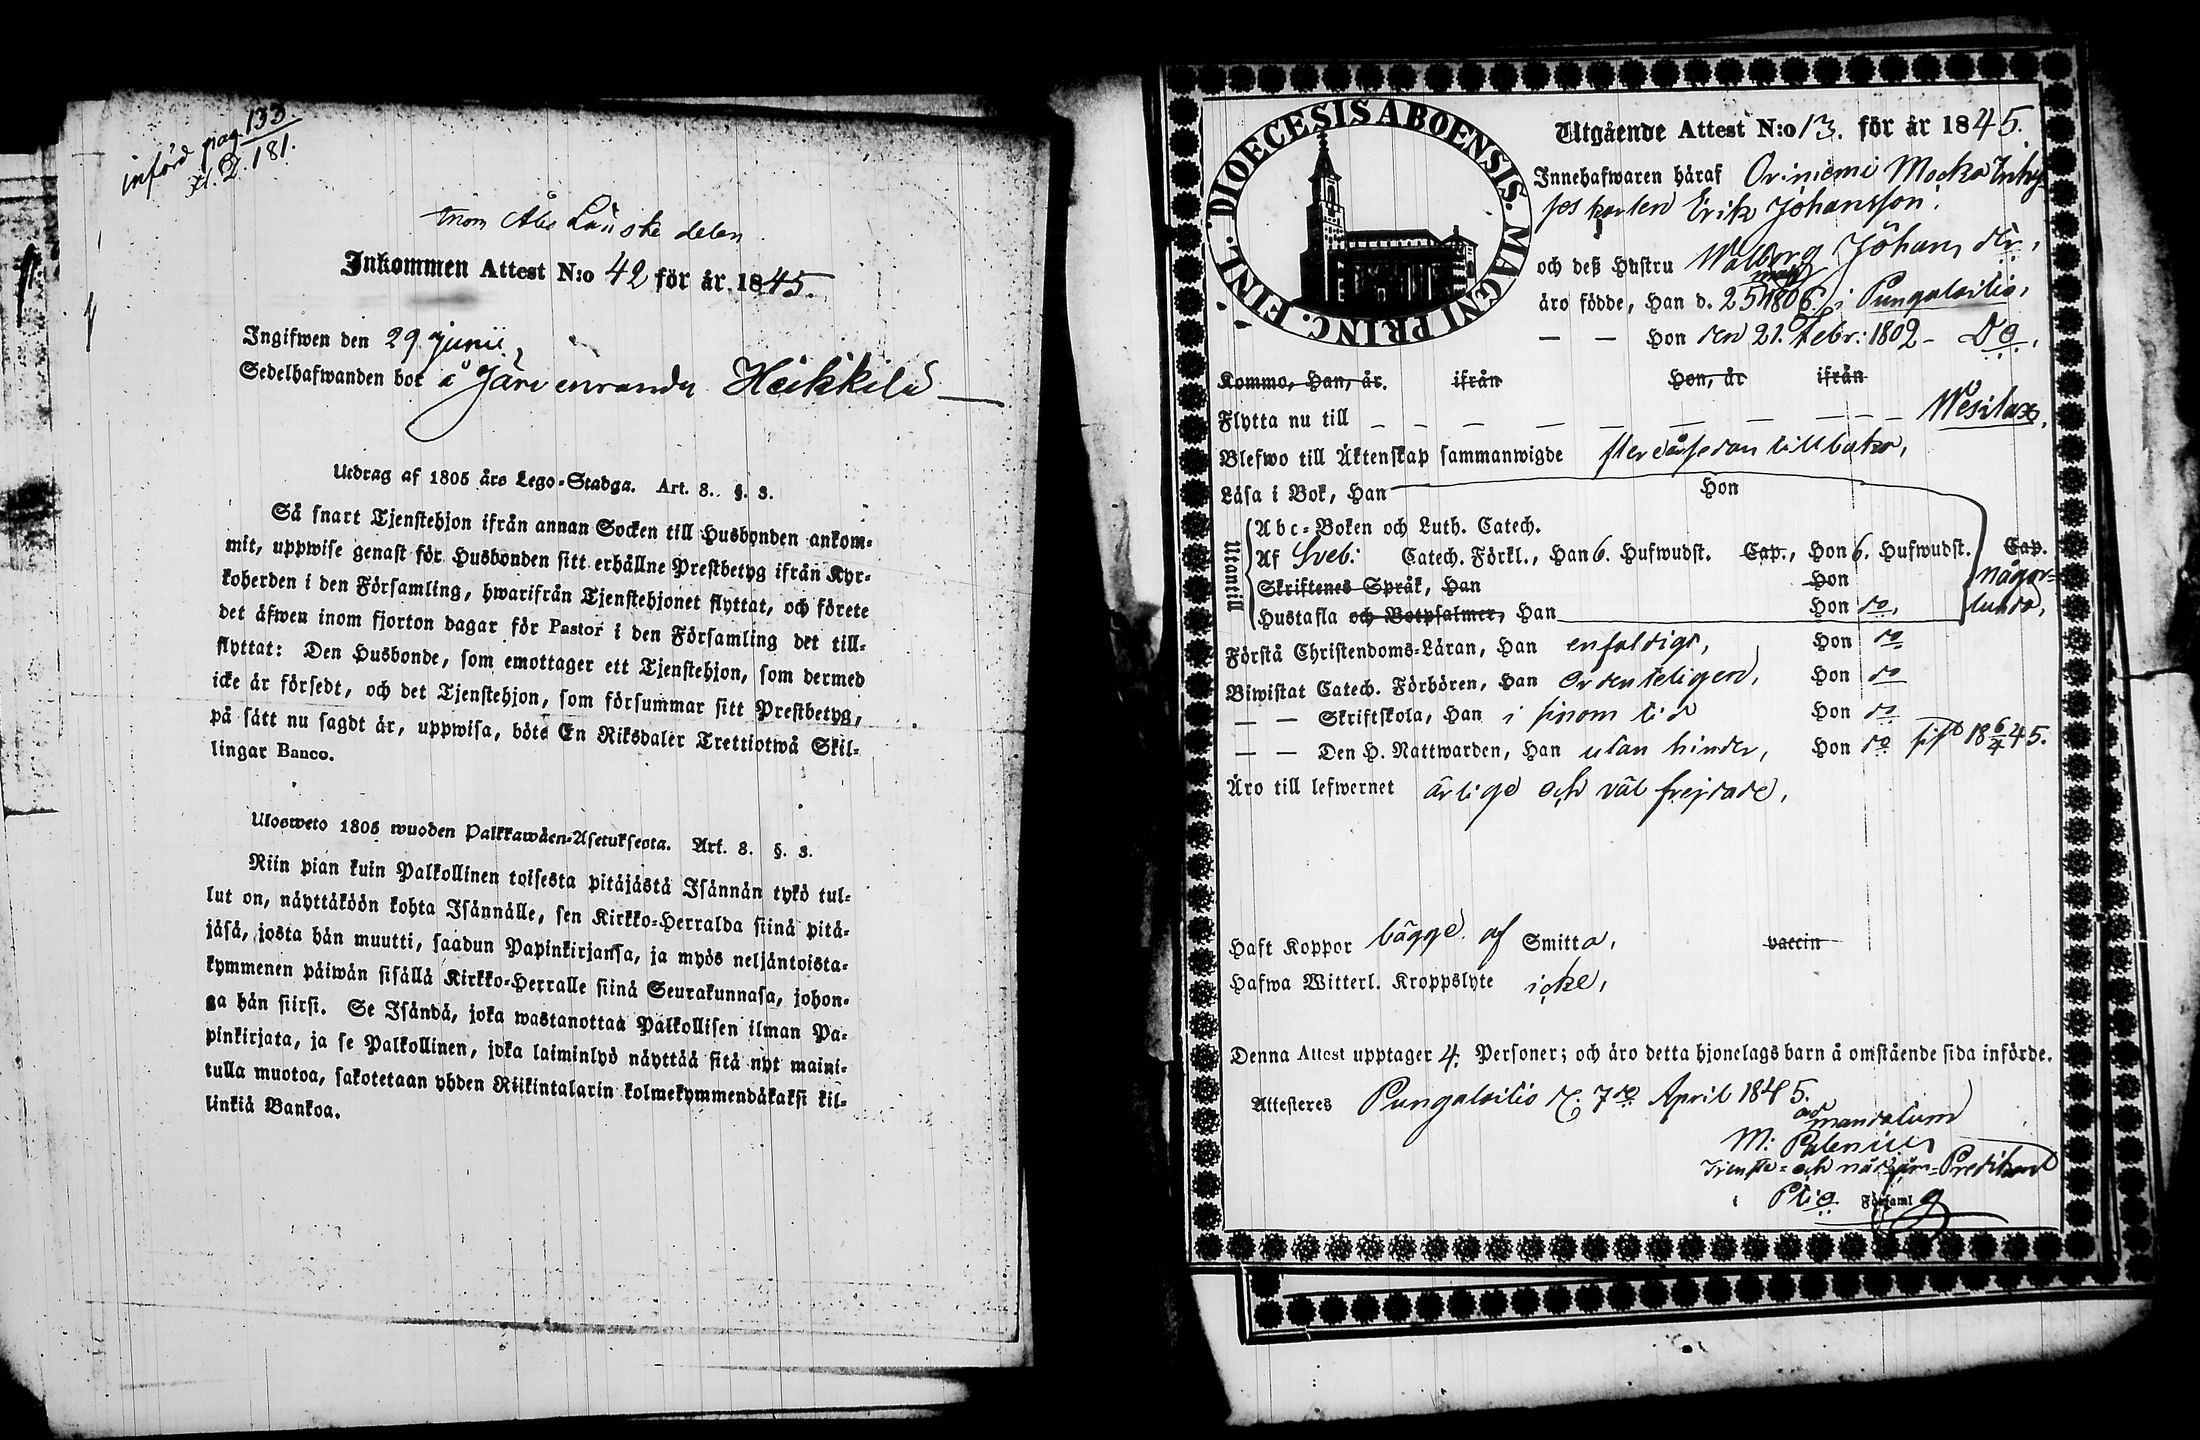 införd pag 133.
Kl. D. 181.
inom Åbo Länske delen
Inkommen Attest N:o 42 för år 1845.
Ingifwen den 29 Junii
Sedelhafwanden bor å Järvenranda Heikkilä
Utdrag af 1805 års Lego-Stadga. Art. 8. §. 3.
Så snart Tjenstehjon ifrån annan Socken till Husbonden ankom-
mit, uppwise genast för Husbonden sitt erhållne Prestbetyg ifrån Kyr-
koherden i den Församling, hwarifrån Tjenstehjonet flyttat, och förete
det äfwen inom fjorton dagar för Pastor i den Församling det till-
flyttat: Den Husbonde, som emottager ett Tjenstehjon, som dermed
icke är försedt, och det Tjenstehjon, som försummar sitt Prestbetyg,
på sätt nu sagdt är, uppwisa, böte En Riksdaler Trettiotwå Skil-
lingar Banco.
Ulosweto 1805 wuoden Palkkawäen-Asetuksesta. Art. 8. §. 3.
Niin pian kuin Palkollinen toisesta pitäjästä Isännän tykö tul-
lut on, näyttäköön kohta Isännälle, sen Kirkko-Herralda siinä pitä-
jäsä, josta hän muutti, saadun Papinkirjansa, ja myös neljäntoista-
kymmenen päiwän sisällä Kirkko-Herralle siinä Seurakunnasa, johon-
ga hän siirsi. Se Isändä, joka wastanottaa Palkollisen ilman Pa-
pinkirjata, ja se Palkollinen, joka laiminlyö näyttää sitä nyt maini-
tulla muotoa, sakotetaan yhden Riikintalarin kolmekymmendäkaksi kil-
linkiä Bankoa.
DIOECESIS ABOENSIS. MAGNI PRINC. FINL.
Utgående Attest N:o 13. för år 1845.
Innehafwaren häraf Oriniemi Mocka Inhy
ses karlen Erik Johansson.
och deß Hustru Walborg Johans dtr,
äro födde, Han d. 25 maji 1806 i Pungalaitio,
— — Hon den 21. Febr: 1802 - Do,
Kommo, Han, år. ifrån Hon, år ifrån
Flytta nu till — — — — — — — — — Wesilax,
Blefwo till Äktenskap sammanwigde flere år sedan tillbaka,
Läsa i Bok, Han Hon
Utantill
Abc-Boken och Luth. Catech.
Af Sveb: Catech. Förkl., Han 6. Hufwudst. Cap., Hon 6. Hufwudst. Cap.
Skriftenes Språk, Han Hon någor-
Hustafla och Botpsalmer, Han Hon do, lunda,
Förstå Christendoms-Läran, Han enfaldigt, Hon do
Biwistat Catech. Förhören, Han ordenteligen, Hon do
— — Skriftskola, Han i sinom tid Hon do
— — Den H. Nattwarden, Han utan hinder, Hon do sist 18 6/4 45.
Äro till lefwernet ärlige och väl frejdade,
Haft Koppor bägge af Smitta, vaccin
Hafwa Witterl. Kroppslyte icke,
Denna Attest upptager 4. Personer; och äro detta hjonelags barn å omstående sida införde.
Attesteres Pungalaitio d. 7de April 1845.
ad mandatum
M: Polenius
Tjenste- och nådårs-Predikant
i Ptio Församl